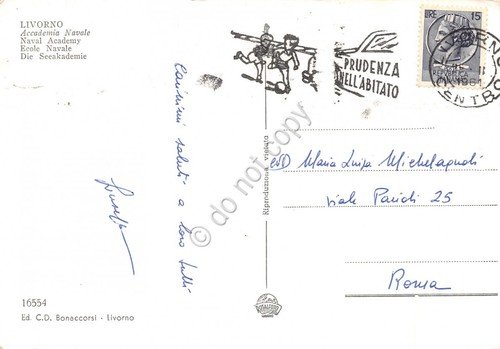 LIVORNO
Accademia Navale
Naval Academy
Ecole Navale
Die Seeakademie
PRUDENZA
NELL'ABITATO
LIRE 15
CENTRO
Carissimi saluti a loro tutti
Giuseppe
Riproduzione Vietata
Maria Luisa Michelagnoli
viale Parioli 25
Roma
16554
Ed. C.D. Bonaccorsi - Livorno
© do not copy